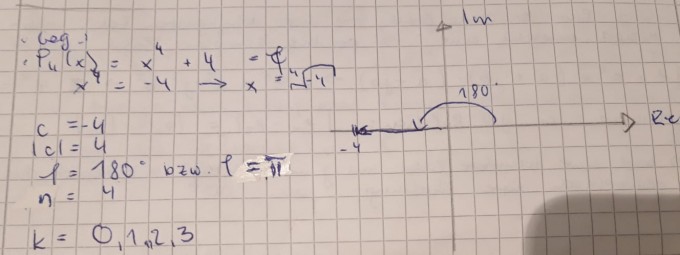 P₄(x) = x⁴ + 4 =
x⁴ = -4 → x = ∜-4
c = -4
|c| = 4
φ = 180° bzw. φ = π
n = 4
k = 0, 1, 2, 3
Im
180°
Re
-4